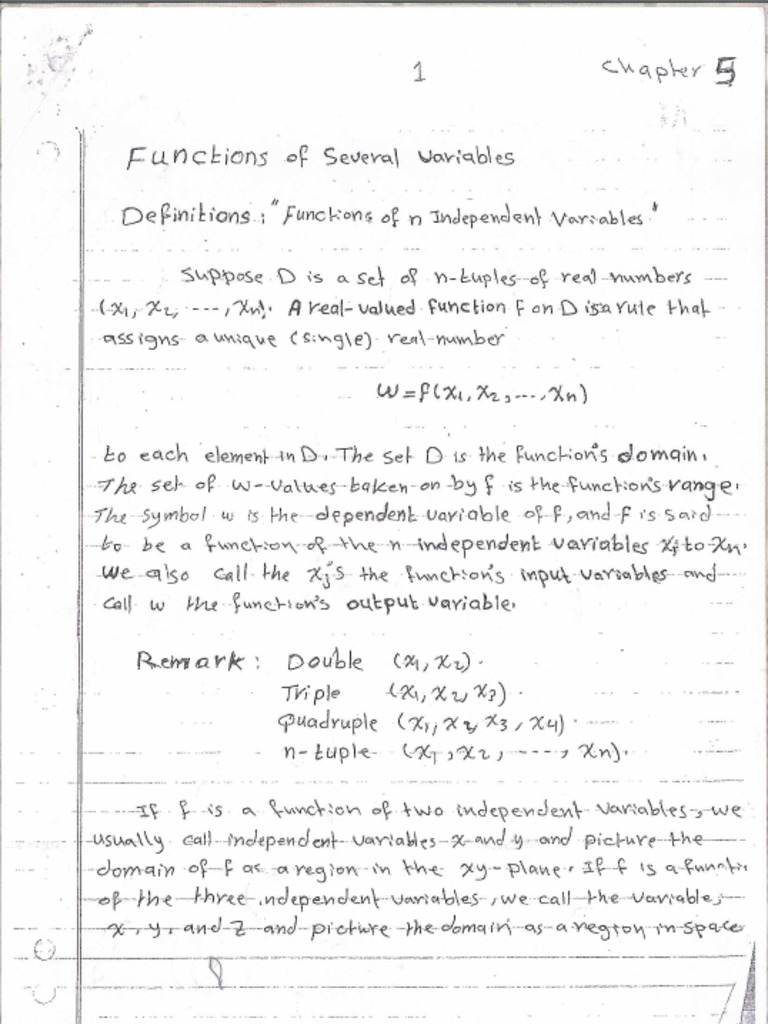 1
Chapter 5
Functions of Several Variables
Definitions: "Functions of n Independent Variables"
Suppose D is a set of n-tuples of real numbers
(x₁, x₂, ---, xₙ). A real-valued function f on D is a rule that
assigns a unique (single) real number
w = f(x₁, x₂, ---, xₙ)
to each element in D. The set D is the function's domain.
The set of w-values taken on by f is the function's range.
The symbol w is the dependent variable of f, and f is said
to be a function of the n independent variables x₁ to xₙ.
We also call the xⱼ's the function's input variables and
call w the function's output variable.
Remark: Double (x₁, x₂).
Triple (x₁, x₂, x₃).
Quadruple (x₁, x₂, x₃, x₄).
n-tuple (x₁, x₂, ----, xₙ).
If f is a function of two independent variables, we
usually call independent variables x and y and picture the
domain of f as a region in the xy-plane. If f is a functi
of the three independent variables, we call the variables
x, y, and z and picture the domain as a region in space